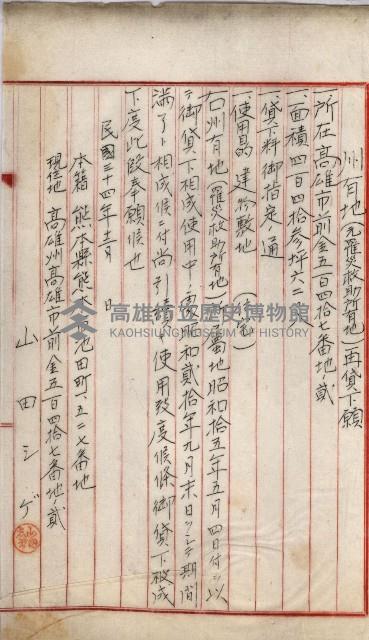 州有地(元罹災救助所有地)再貸下願
一、所在 高雄市前金五百四拾七番地ノ貳
一、面積 四百四拾參坪六二
一、貸下料 御指定ノ通
一、使用 建物敷地
右州有地(罹災救助所有地)屬地昭和拾五年五月四日付ヲ以
テ御貸下相成使用中ノ處昭和貳拾年元月末日ヲ以テ期間
滿了ト相成候ニ付尚引續キ使用致度候條御貸下被成
下度此段奉願候也
民國三十四年十二月 日
本籍 熊本縣熊本市池田町一、五二七番地
現住地 高雄州高雄市前金五百四拾七番地ノ貳
山田シゲ
高雄市立歷史博物館
KAOHSIUNG MUSEUM OF HISTORY